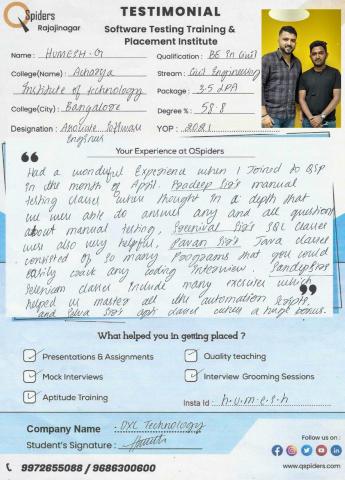 QSpiders
Rajajinagar
TESTIMONIAL
Software Testing Training &
Placement Institute
Name : HUMESH.G
Qualification : BE In Civil
College(Name) : Acharya
Institute of technology
Stream : Civil Engineering
Package : 3.5 LPA
College(City) : Bangalore
Degree % : 58.8
Designation : Associate Software
Engineer
YOP : 2021
Your Experience at QSpiders
Had a wonderful Experience when I Joined to QSP
in the month of April. Pradeep Sir's manual
testing classes when thought in a depth that
we were able do answer any and all question
about manual testing, Sreenivas Sir's SQL classes
were also very helpful, Pavan Sir's Java classes
consisted of so many Programs that you could
easily crack any coding Interview. Sandeep Sir's
Selenium classes Include many exercises which
helped us master all the automation Scripts,
and Selva Sir's apti classes were a huge bonus.
What helped you in getting placed ?
Presentations & Assignments
Quality teaching
Mock Interviews
Interview Grooming Sessions
Aptitude Training
Insta Id : h.u.m.e.s.h
Company Name : DXC Technology
Student's Signature :
Follow us on :
9972655088 / 9686300600
www.qspiders.com